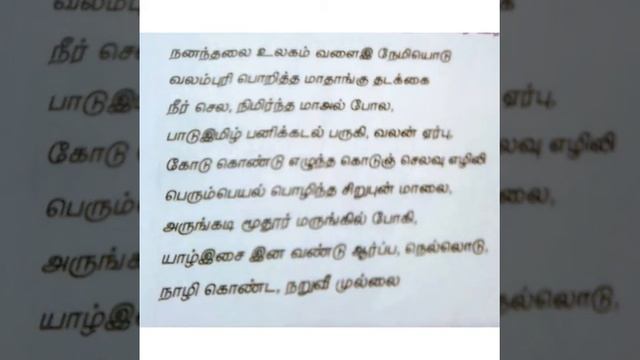 நனந்தலை உலகம் வளைஇ நேமியொடு
வலம்புரி பொறித்த மாதாங்கு தடக்கை
நீர் செல, நிமிர்ந்த மாஅல் போல,
பாடுஇமிழ் பனிக்கடல் பருகி, வலன் ஏர்பு,
கோடு கொண்டு எழுந்த கொடுஞ் செலவு எழிலி
பெரும்பெயல் பொழிந்த சிறுபுன் மாலை,
அருங்கடி மூதூர் மருங்கில் போகி,
யாழ்இசை இன வண்டு ஆர்ப்ப, நெல்லொடு,
நாழி கொண்ட, நறுவீ முல்லை